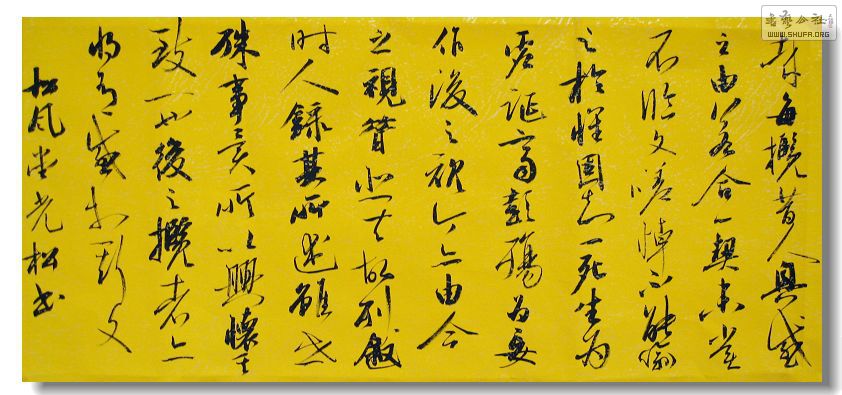 哉每攬昔人興感
之由若合一契未嘗
不臨文嗟悼不能喻
之於懷固知一死生為
虛誕齊彭殤為妄
作後之視今亦由今
之視昔悲夫故列敘
時人錄其所述雖世
殊事異所以興懷其
致一也後之攬者亦
將有感於斯文
松風堂光松書
書藝公社
WWW.SHUFA.ORG